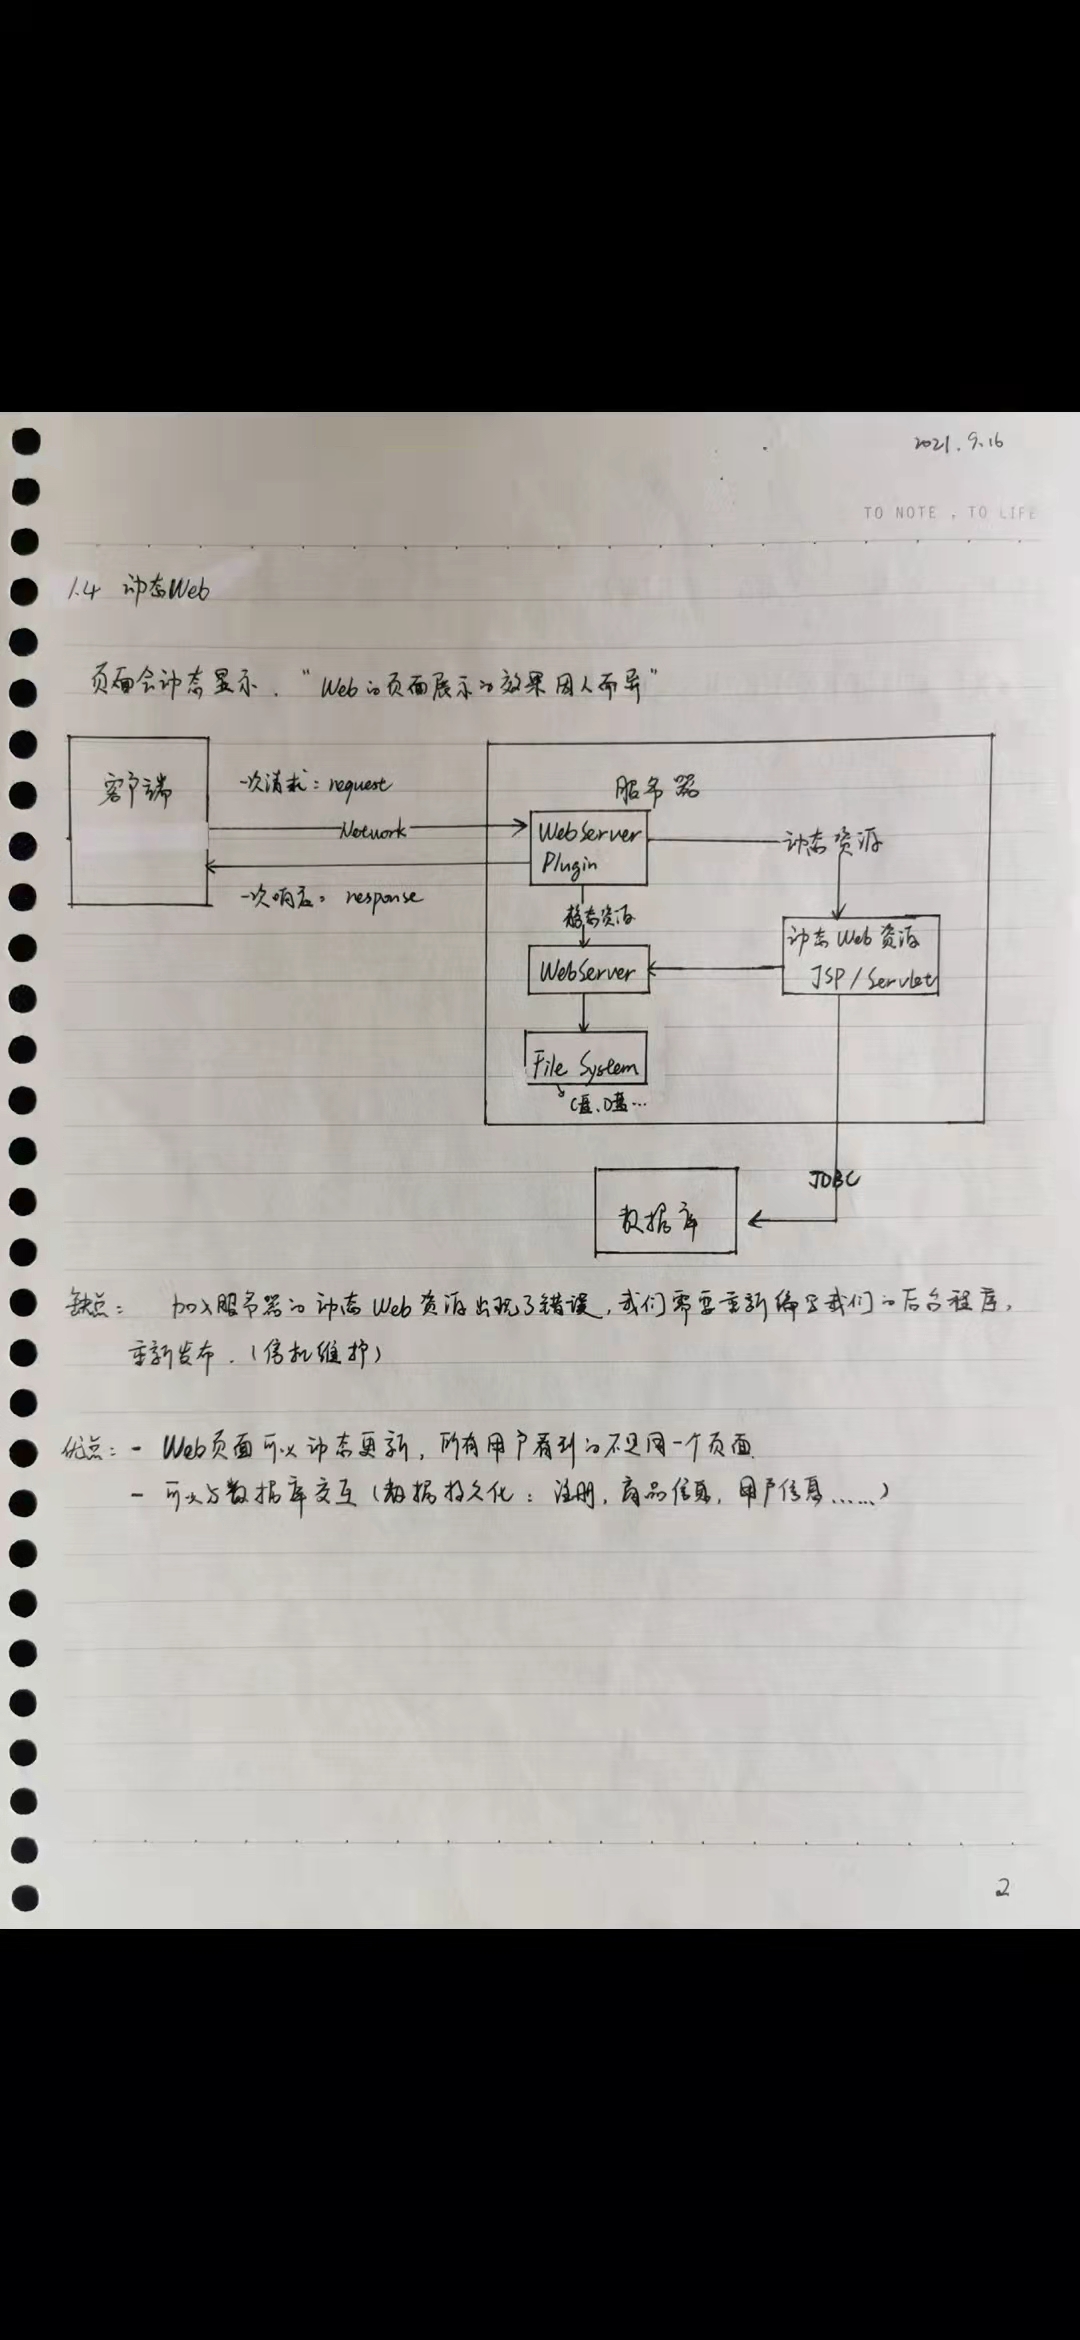 2021.9.16
TO NOTE , TO LIFE
1.4 动态Web
页面会动态显示. “Web的页面展示的效果因人而异”
客户端
一次请求: request
服务器
Network
WebServer
Plugin
动态资源
一次响应: response
静态资源
动态Web资源
JSP/Servlet
WebServer
File System
C盘、D盘...
JDBC
数据库
缺点: 加入服务器的动态Web资源出现了错误, 我们需要重新编写我们的后台程序,
重新发布. (停机维护)
优点: - Web页面可以动态更新, 所有用户看到的不是同一个页面.
- 可以与数据库交互 (数据持久化: 注册, 商品信息, 用户信息......)
2